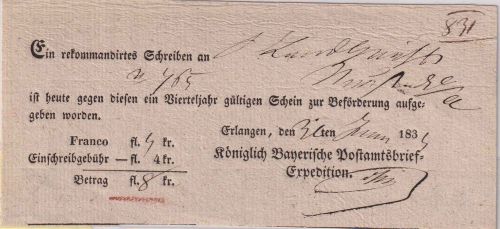 831
Ein rekommandirtes Schreiben an
ist heute gegen diesen ein Vierteljahr gültigen Schein zur Beförderung aufge-
geben worden.
Erlangen, den ten Juni 183
Franco fl. 4 kr.
Einschreibgebühr — fl. 4 kr.
Betrag fl. 8 kr.
Königlich Bayerische Postamtsbrief-
Expedition.